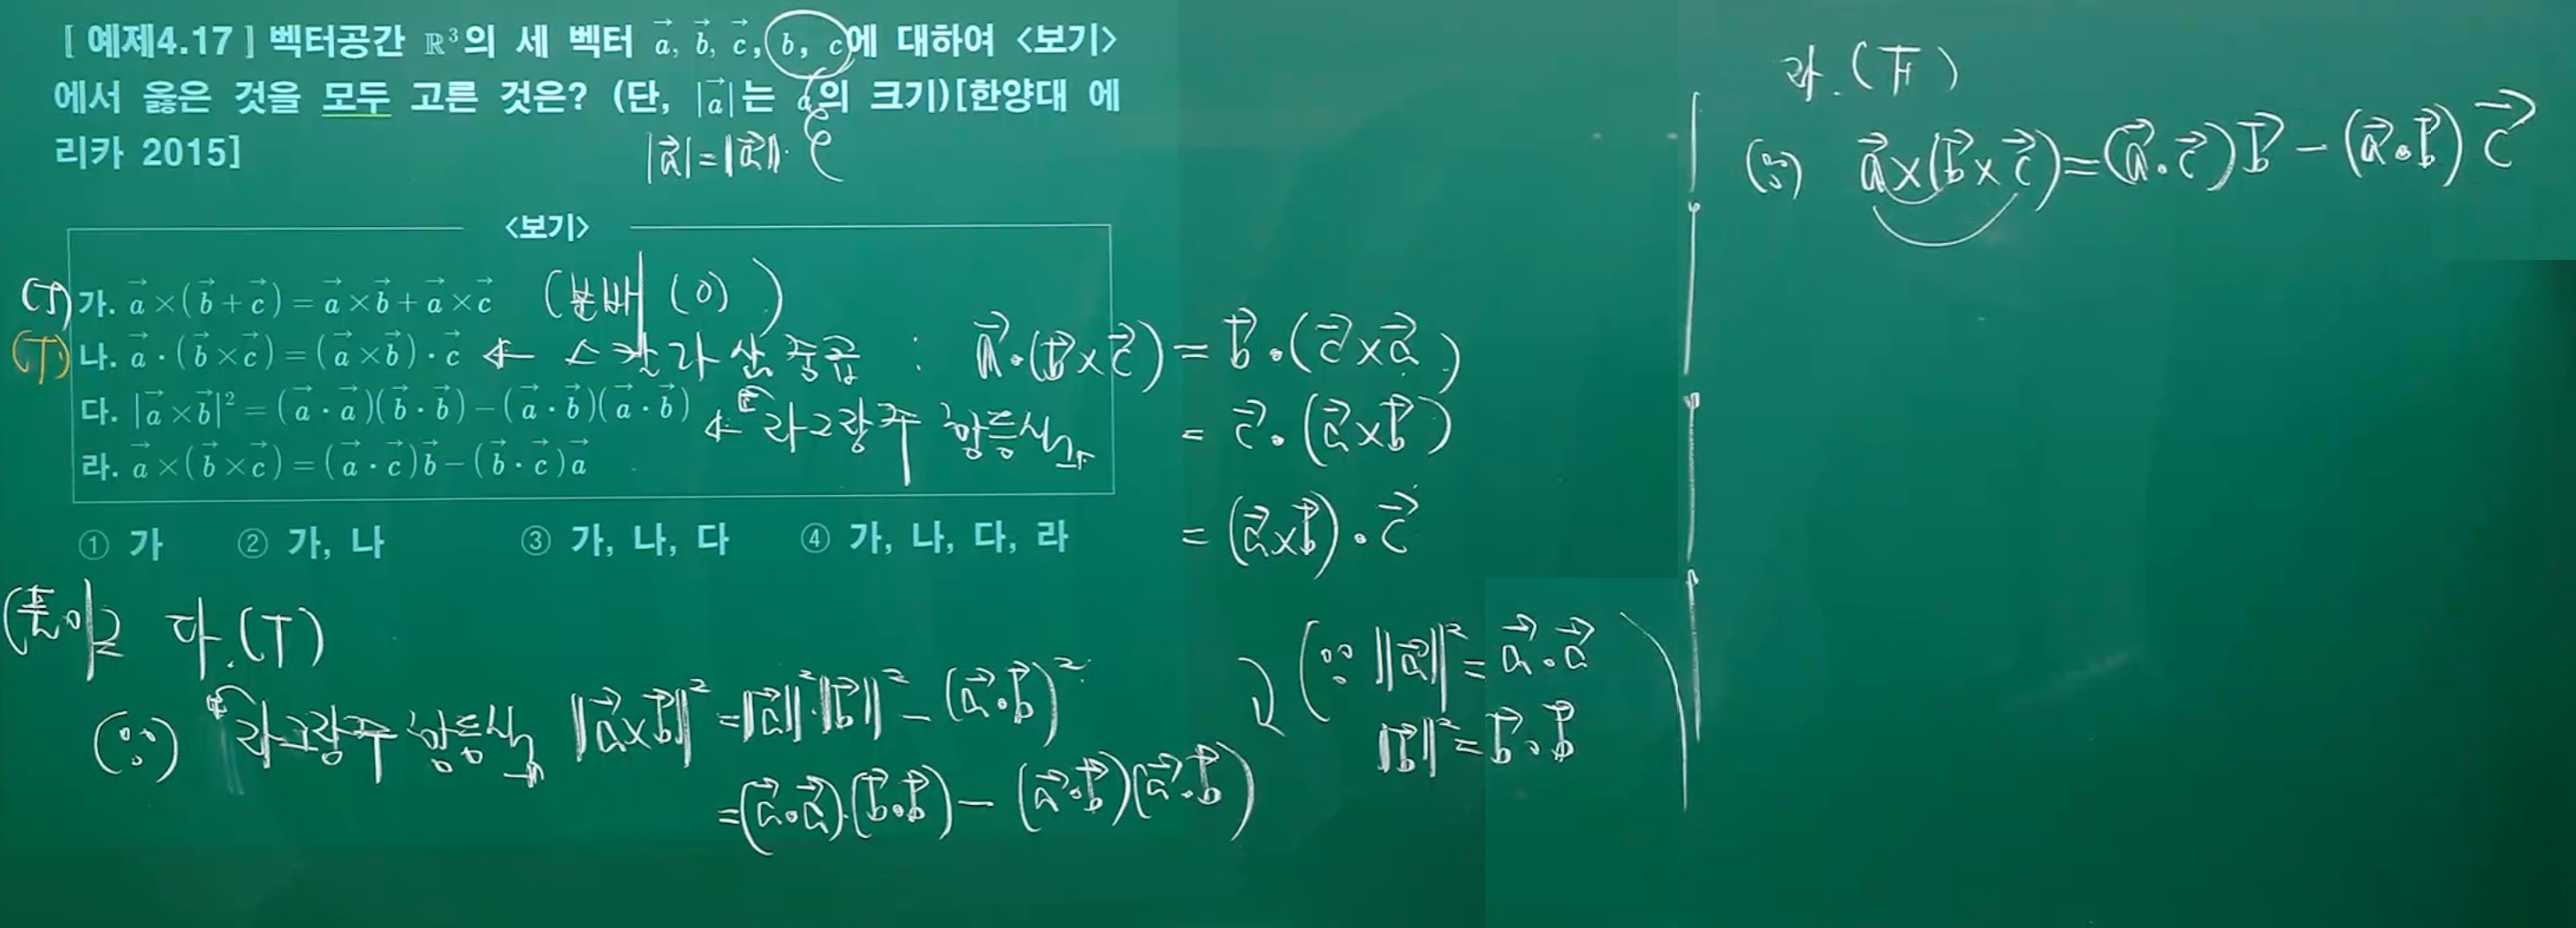 [ 예제4.17 ] 벡터공간 ℝ³의 세 벡터 a⃗, b⃗, c⃗, b, c에 대하여 <보기>
에서 옳은 것을 모두 고른 것은? (단, |a⃗|는 a의 크기)[한양대 에
리카 2015]
|a⃗| = ‖a⃗‖.
<보기>
(T) 가. a⃗×(b⃗+c⃗) = a⃗×b⃗+a⃗×c⃗ (분배 (0))
(T) 나. a⃗·(b⃗×c⃗) = (a⃗×b⃗)·c⃗ ← 스칼라 삼중곱 : a⃗·(b⃗×c⃗) = b⃗·(c⃗×a⃗)
다. |a⃗×b⃗|² = (a⃗·a⃗)(b⃗·b⃗)−(a⃗·b⃗)(a⃗·b⃗) ← 라그랑주 항등식
= c⃗·(a⃗×b⃗)
라. a⃗×(b⃗×c⃗) = (a⃗·c⃗)b⃗−(b⃗·c⃗)a⃗
= (a⃗×b⃗)·c⃗
① 가 ② 가, 나 ③ 가, 나, 다 ④ 가, 나, 다, 라
(풀이) 다.(T)
(∵) 라그랑주 항등식 ‖a⃗×b⃗‖² = ‖a⃗‖²·‖b⃗‖² − (a⃗·b⃗)²
= (a⃗·a⃗)·(b⃗·b⃗) − (a⃗·b⃗)(a⃗·b⃗)
(∵ ‖a⃗‖² = a⃗·a⃗
‖b⃗‖² = b⃗·b⃗)
라.(F)
(∵) a⃗×(b⃗×c⃗) = (a⃗·c⃗)b⃗ − (a⃗·b⃗)c⃗